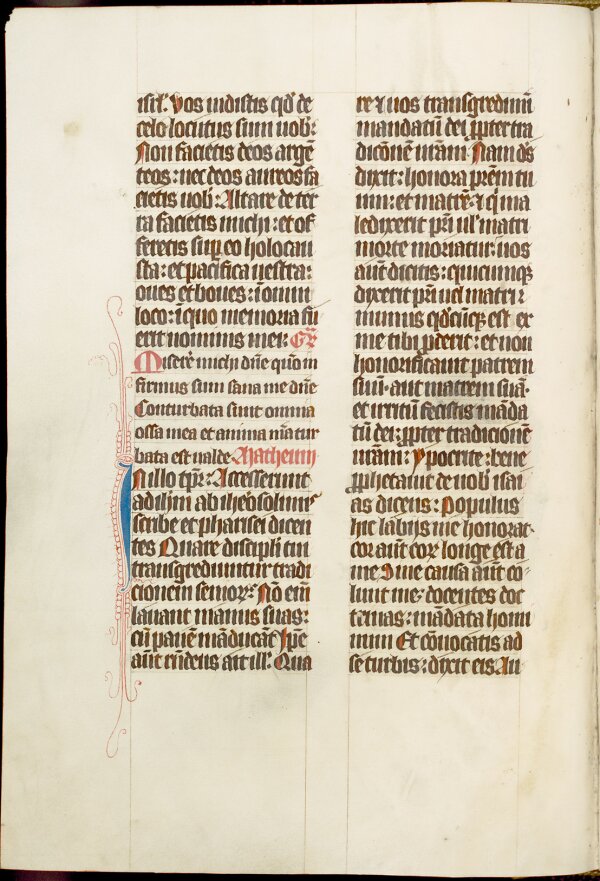 isrl'. Vos uidistis qd' de
celo locutus sum uob':
Non facietis deos argē
teos: nec deos aureos fa
cietis uob'. Altare de ter
ra facietis michi: et of
feretis sup eo holocau
sta: et pacifica uestra:
oues et boues: ī omni
loco: ī quo memoria fu
erit nominis mei: Gr̄
Misere michi dn̄e qm̄ in
firmus sum sana me dn̄e
Conturbata sunt omnia
ossa mea et anima m̄a tur
bata est ualde. Matheum
In illo tp̄r: Accesserunt
ad ihm̄ ab iherosolimis
scribe et pharisei dicen
tes Quare discipli tui
transgrediuntur tradi
cionem senior̄: Nō em̄
lauant manus suas:
cū panē māducāt Ip̄e
aūt rn̄dens ait ill': Qua
re ⁊ uos transgredimi
mandatū dei ꝓpter tra
dicōnē uram̄. Nam ds̄
dixit: honora prēm tu
um: et matrē. ⁊ q' ma
ledixerit pr̄i ul' matri
morte moriatur. uos
aūt dicitis: quicumqꝫ
dixerit pr̄i uel matri:
munus qd'cūqꝫ est ex
me tibi ꝓderit: et non
honorificauit patrem
suū. aut matrem suā.
et irritū fecistis māda
tū dei: ꝓpter tradicionē
uram̄: ypocrite: bene
ꝓphetauit de uob' isai
as dicens: Populus
hic labijs me honorat.
cor aūt eor̄ longe est a
me Sine causa aūt co
lunt me: docentes doc
trinas: mādata homi
num Et cōuocatis ad
se turbis: dixit eis Au